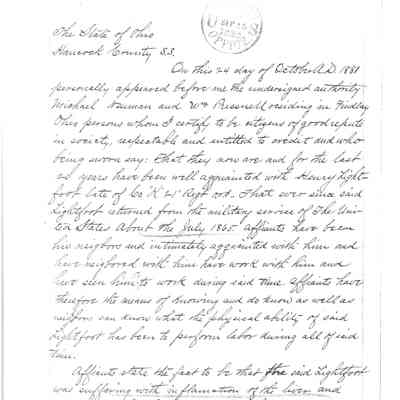 The State of Ohio
Hancock County S.S.
On this 24 day of October A.D. 1881
personally appeared before me the undersigned authority
Michael Neuman and Wm residing in Findlay
Ohio persons whom I certify to be citizens of good repute
in society, respectable and entitled to credit and who
being sworn say: That they now are and for the last
years have been well aquainted with Henry Light-
foot late of Co "K" 21" Regt . That ever since said
Lightfoot returned from the military service of The Uni-
ted States about the July 1865 affiants have been
his neigbors and intimately aquainted with him and
have neigbored with him have work with him and
have seen him to work during said time. Affiants have
therefore the means of knowing and do know as well as
neigbors can know what the physical ability of said
Lightfoot has been to perform labor during all of said
time.
Affiants state the fact to be that the said Lightfoot
was suffering with inflamation of the liver and